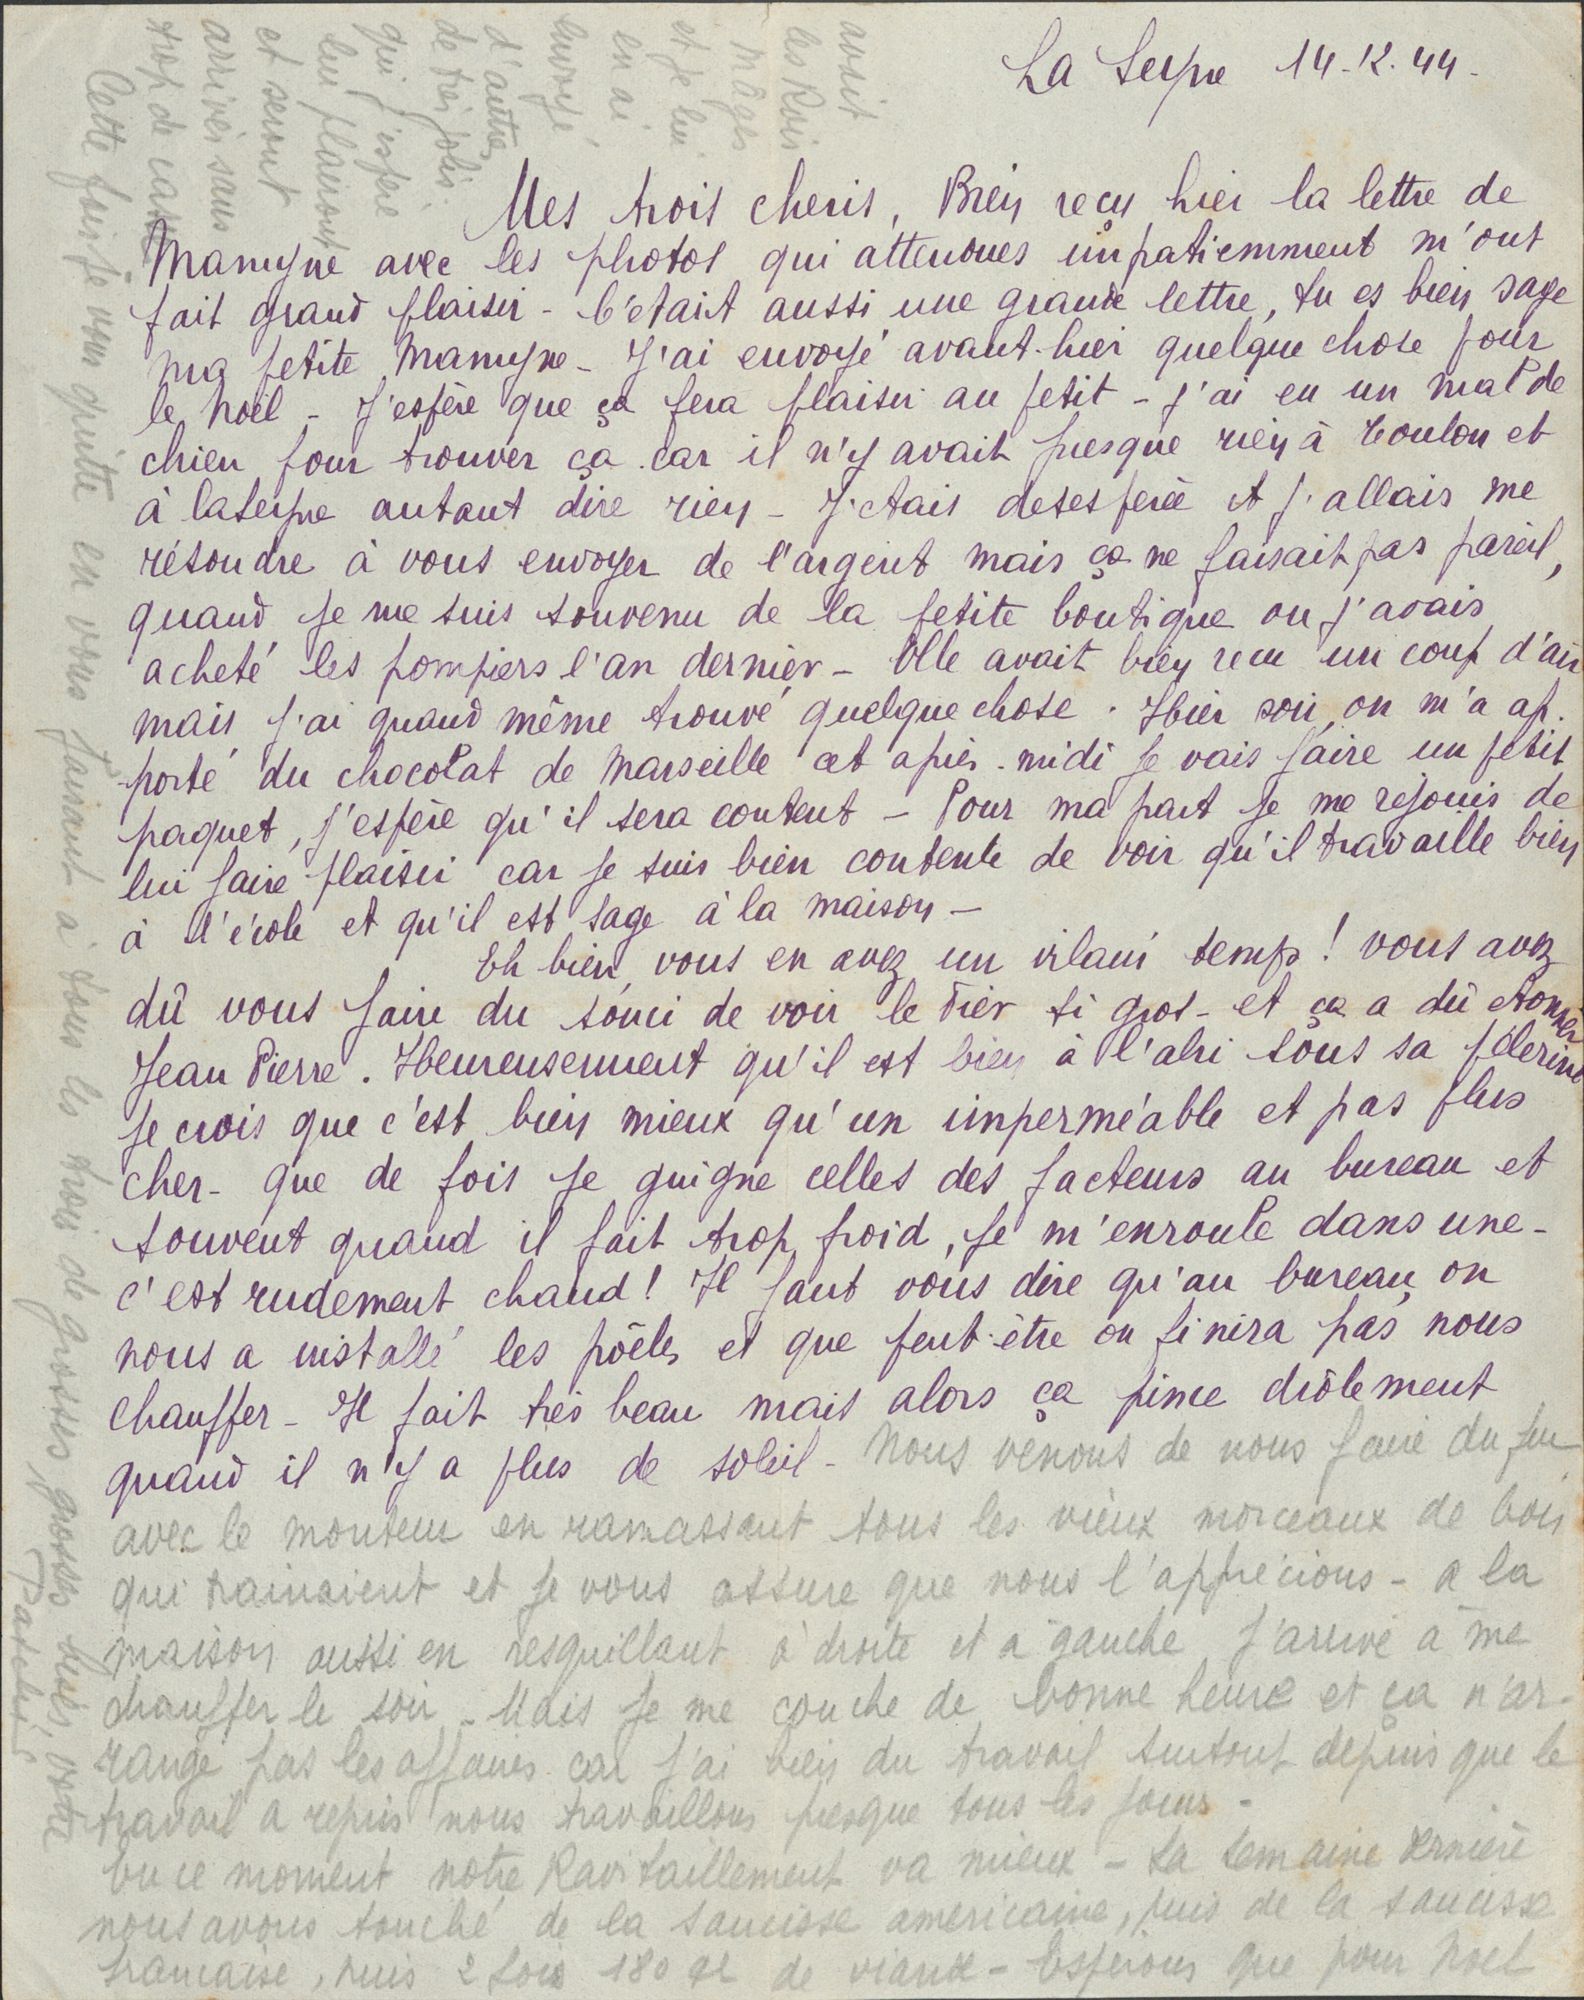 La Seyne 14-12-44-
Mes trois cheris, Bien reçu hier la lettre de
Mamyne avec les photos qui attendues impatiemment m'ont
fait grand plaisir - C'était aussi une grande lettre, tu es bien sage
ma petite Mamyne - J'ai envoyé avant-hier quelque chose pour
le Noël - J'espère que ça fera plaisir au petit - j'ai eu un mal de
chien pour trouver ça car il n'y avait presque rien à Toulon et
à LaSeyne autant dire rien - J'étais desesperée et j'allais me
résoudre à vous envoyer de l'argent mais ça ne faisait pas pareil,
quand je me suis souvenu de la petite boutique ou j'avais
acheté les pompiers l'an dernier - Elle avait bien recu un coup d'air
mais j'ai quand même trouvé quelque chose. Hier soir, on m'a ap-
porté du chocolat de Marseille cet après-midi je vais faire un petit
paquet, j'espère qu'il sera content - Pour ma part je me réjouis de
lui faire plaisir car je suis bien contente de voir qu'il travaille bien
à l'école et qu'il est sage à la maison -
Eh bien, vous en avez un vilain temps! vous avez
dû vous faire du souci de voir le Fier si gros - et ça a dû étonner
Jean Pierre. Heureusement qu'il est bien à l'abri sous sa pélerine
je crois que c'est bien mieux qu'un imperméable et pas plus
cher - que de fois je guigne celles des facteurs au bureau et
souvent quand il fait trop froid, je m'enroule dans une -
c'est rudement chaud! Il faut vous dire qu'au bureau, on
nous a installé les poêles et que peut-être on finira pas nous
chauffer - Il fait très beau mais alors ça pince drôlement
quand il n'y a plus de soleil - Nous venons de nous faire du feu
avec le monteur en ramassant tous les vieux morceaux de bois
qui trainaient et je vous assure que nous l'apprécions - a la
maison aussi en resquillant à droite et à gauche j'arrive à me
chauffer le soir - Mais je me couche de bonne heure et ça n'ar-
range pas les affaires car j'ai bien du travail surtout depuis que le
travail a repris nous travaillons presque tous les jours -
En ce moment notre Ravitaillement va mieux - La semaine dernière
nous avons touché de la saucisse americaine, puis de la saucisse
francaise, puis 2 fois 180 gr de viande - Espérons que pour Noel
avait
les Rois
Mages
et je lui
en ai
envoyé
d'autres
de très jolis
qui j'espère
lui plairont
et seront
arrivés sans
trop de casse
Cette fois je vous quitte en vous faisant à tous les trois de grosses grosses bises, votre